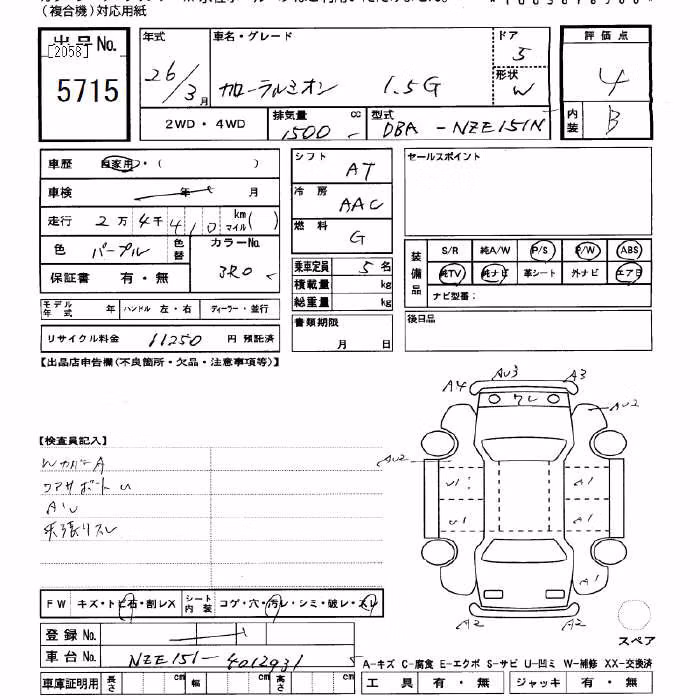 (複合機)対応用紙
出品No.
[2058]
5715
年式 26/3月
車名・グレード カローラルミオン 1.5G
ドア 5
形状 W
2WD・4WD
排気量 1500 cc
型式 DBA-NZE151N
評価点 4
内装 B
車歴 自家用・( )
車検 年 月
走行 2万4千410 km マイル( )
色 パープル
色替
カラーNo. 3R0
保証書 有・無
モデル年式 年 ハンドル 左・右 ディーラー・並行
リサイクル料金 11250 円 預託済
シフト AT
冷房 AAC
燃料 G
乗車定員 5名
積載量 kg
総重量 kg
書類期限 月 日
セールスポイント
装備品
S/R 純A/W P/S P/W ABS
純TV 純ナビ 革シート 外ナビ エアB
ナビ型番:
後日品
【出品店申告欄(不良箇所・欠品・注意事項等)】
AU3
A4 A3
ワレ
AU2
AU2
U1 A1
U1 A1
A1
A2 A2
スペア
【検査員記入】
WカバーA
コアサポートU
A/U
天張リスレ
FW キズ・トビ石・割レX
シート内装 コゲ・穴・汚レ・シミ・破レ・スレ
登録No.
車台No. NZE151-4012931 5
車庫証明用 長さ cm 幅 cm 高さ cm
A-キズ C-腐食 E-エクボ S-サビ U-凹ミ W-補修 XX-交換済
工具 有・無 ジャッキ 有・無